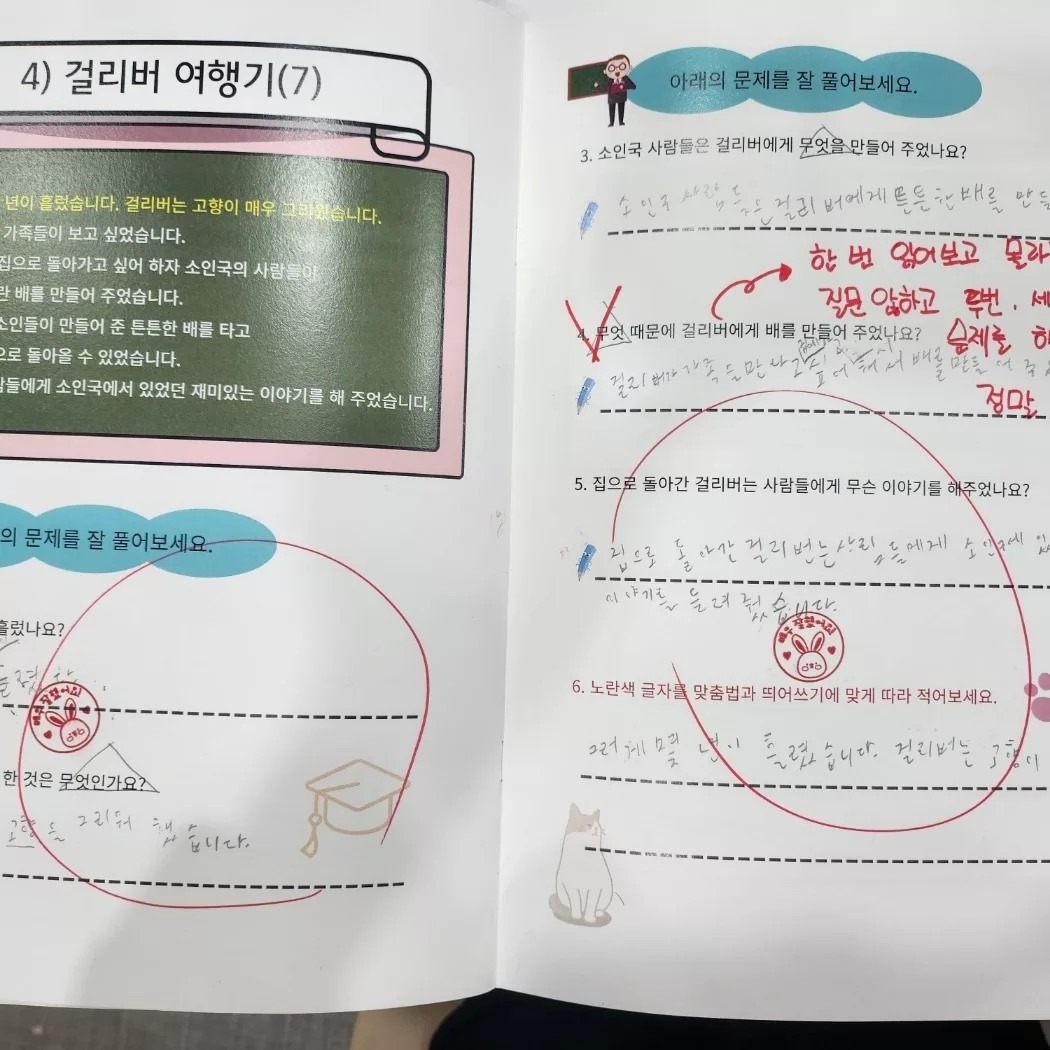 4) 걸리버 여행기(7)
년이 흘렀습니다. 걸리버는 고향이 매우 그리웠습니다.
가족들이 보고 싶었습니다.
집으로 돌아가고 싶어 하자 소인국의 사람들이
란 배를 만들어 주었습니다.
소인들이 만들어 준 튼튼한 배를 타고
으로 돌아올 수 있었습니다.
람들에게 소인국에서 있었던 재미있는 이야기를 해 주었습니다.
의 문제를 잘 풀어보세요.
흘렀나요?
매우 잘했어요!
한 것은 무엇인가요?
고향을 그리워 했습니다.
아래의 문제를 잘 풀어보세요.
3. 소인국 사람들은 걸리버에게 무엇을 만들어 주었나요?
소인국 사람들은 걸리버에게 튼튼한 배를 만들
한 번 읽어보고 몰라
질문 않하고 두번. 세
숙제를 하
정말
4. 무엇 때문에 걸리버에게 배를 만들어 주었나요?
걸리버가 가족들 만나고 배를 만들어 주
5. 집으로 돌아간 걸리버는 사람들에게 무슨 이야기를 해주었나요?
집으로 돌아간 걸리버는 사람들에게
이야기를 들려 줬습니다.
매우 잘했어요!
6. 노란색 글자를 맞춤법과 띄어쓰기에 맞게 따라 적어보세요.
그러게 몇 년이 흘렀습니다. 걸리버는 고향이